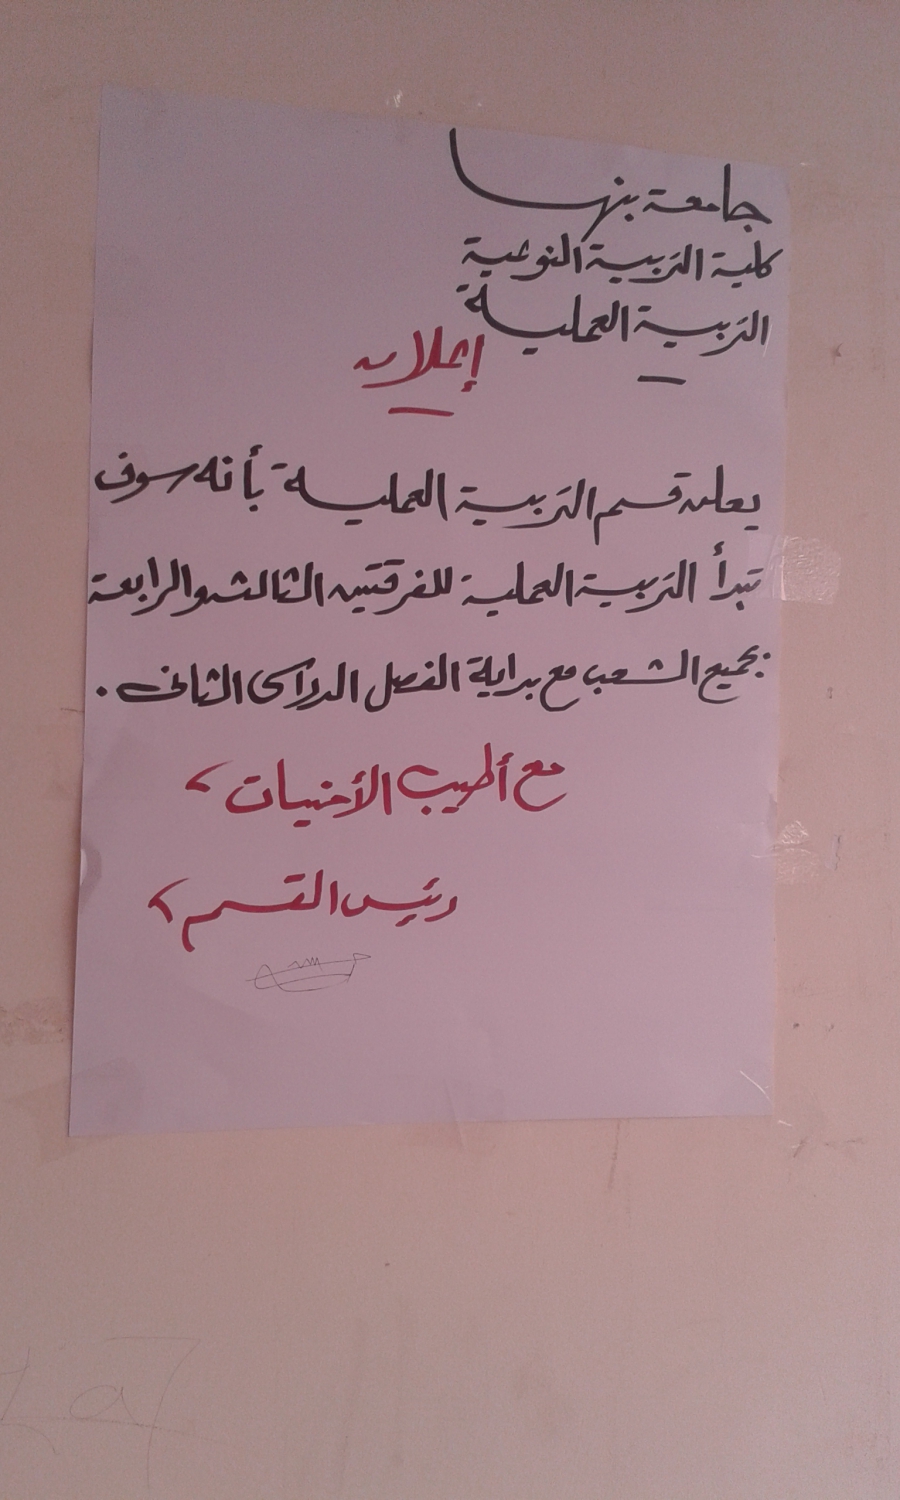 جامعة بنها
كلية التربية النوعية
التربية العملية
إعلان
يعلن قسم التربية العملية بأنه سوف
تبدأ التربية العملية للفرقتين الثالثة والرابعة
بجميع الشعب مع بداية الفصل الدراسى الثانى .
مع أطيب الأمنيات،
رئيس القسم،